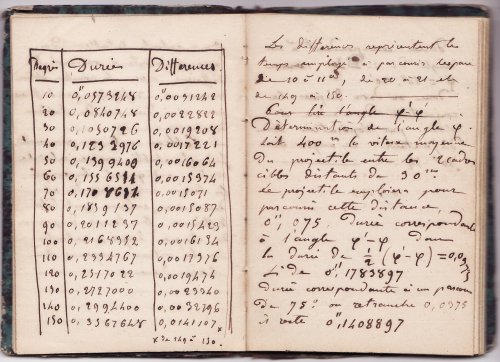 Degrés Durées Différences
10 0",0573248 0,0031242
20 0,0840748 0,0022822
30 0,1050726 0,0019208
40 0,1232976 0,0017221
50 0,1399400 0,0016064
60 0,0015374
70 0,0015071
80 0,1859137 0,0015087
90 0,2011237 0,0015423
100 0,2168352 0,0016134
110 0,2334767 0,0017376
120 0,2517022 0,0019474
130 0,2727000 0,0023340
140 0,2994400 0,0032796
150 0,3567648 0,0141107 *
* de 149 à 150.
Les différences représentent le
temps employé à parcourir l'espace
de 10 à 11°, de 20 à 21 et
de 149 à 150.
l'angle φ'-φ
Détermination de l'angle φ.
Soit 400 m la vitesse moyenne
du projectile entre les 2 cadres
cibles distants de 30 m
le projectile emploiera pour
parcourir cette distance,
0",075. Durée correspondante
à l'angle φ'-φ donc
la durée de 1/2 (φ'-φ) = 0,0375
de 0",1783897
durée correspondante à un parcours
de 75° on retranche 0,0375
il reste 0",1408897